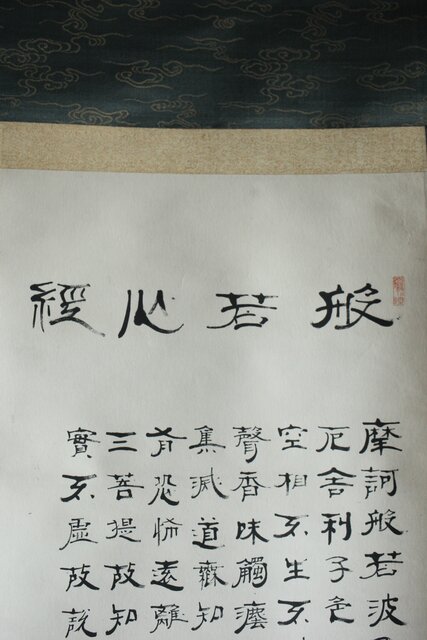 般若心經
摩訶般若波
厄舍利子色
空相不生不
聲香味觸灋
集滅道無知
有恐怖遠離
三菩提故知
實不虛故說